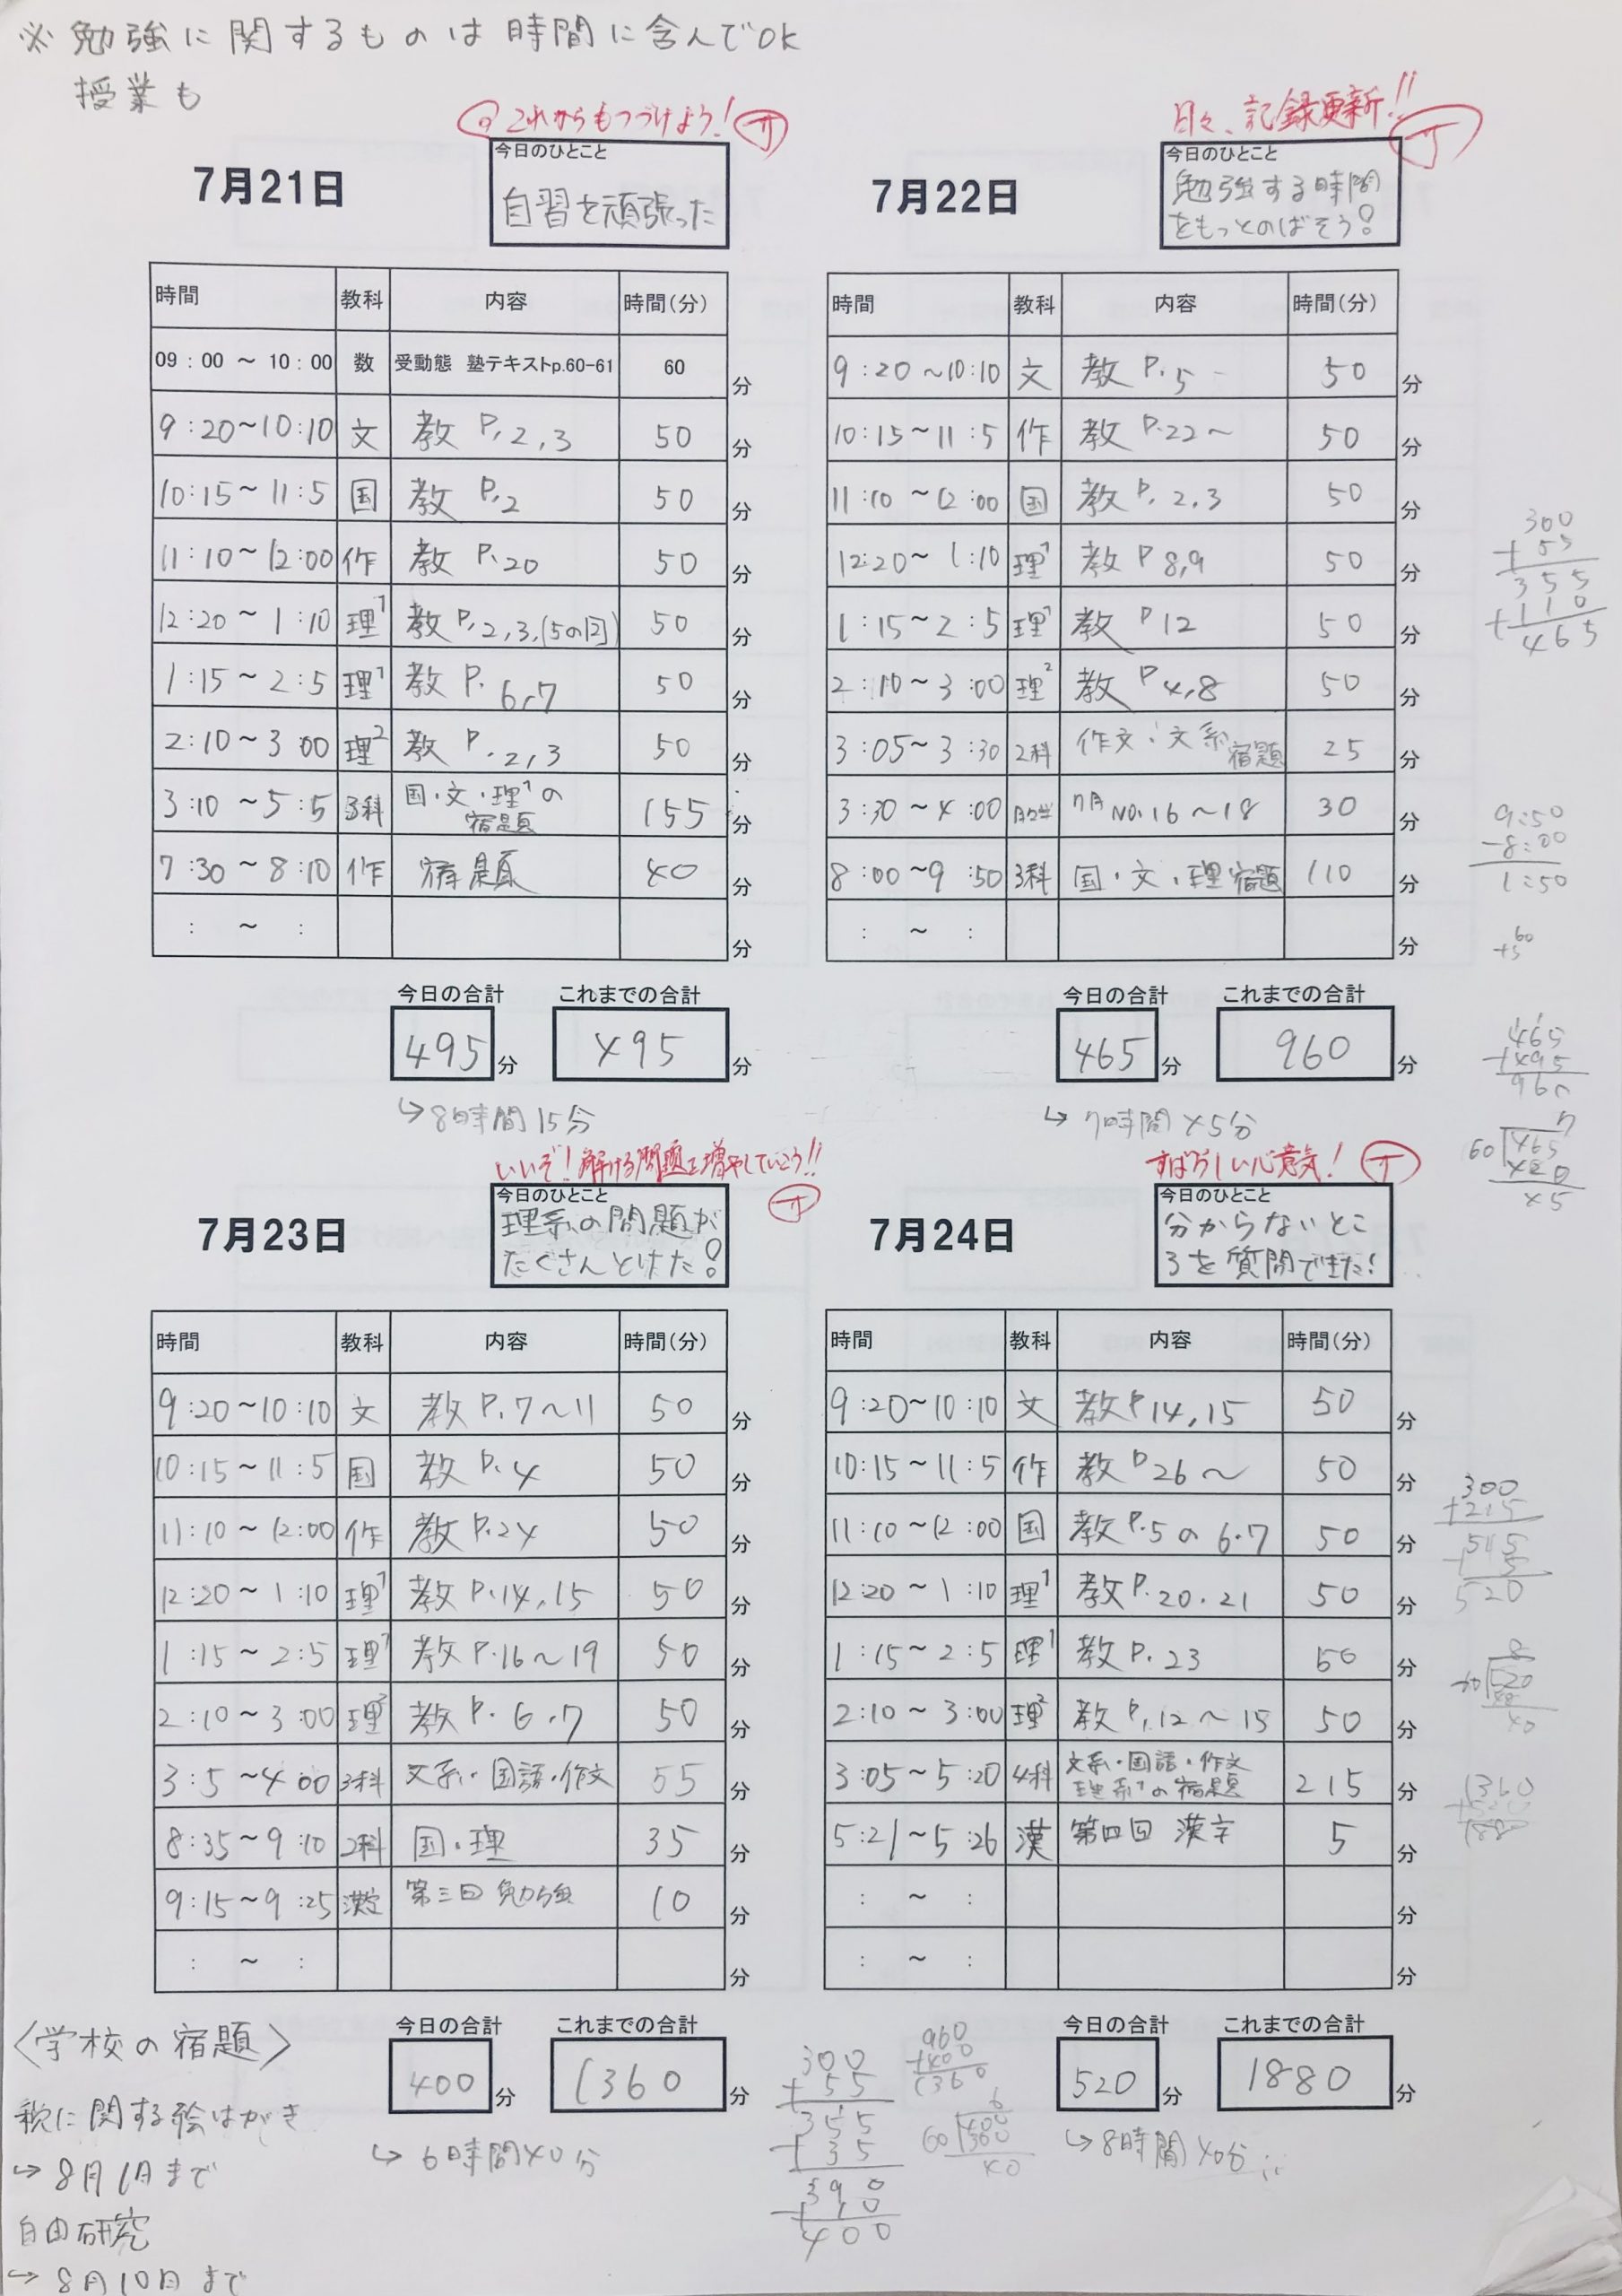 ※ 勉強に関するものは時間に含んでOK
授業も
これからもつづけよう!
7月21日
今日のひとこと
自習を頑張った
時間 教科 内容 時間(分)
09:00 ~ 10:00 数 受動態 塾テキストp.60-61 60 分
9:20~10:10 文 教 P.2,3 50 分
10:15~11:5 国 教 P.2 50 分
11:10~12:00 作 教 P.20 50 分
12:20~1:10 理1 教 P.2,3,(5の図) 50 分
1:15~2:5 理1 教 P.6,7 50 分
2:10~3 00 理2 教 P.2,3 50 分
3:10~5:5 3科 国・文・理1の宿題 155 分
7:30~8:10 作 宿題 40 分
: ~ : 分
今日の合計 これまでの合計
495 分 495 分
↳8時間15分
日々、記録更新!!
7月22日
今日のひとこと
勉強する時間
をもっとのばそう!
時間 教科 内容 時間(分)
9:20~10:10 文 教 P.5 50 分
10:15~11:5 作 教 P.22~ 50 分
11:10~12:00 国 教 P.2,3 50 分
12:20~1:10 理1 教 P 8,9 50 分
1:15~2:5 理1 教 P 12 50 分
2:10~3:00 理2 教 P 4,8 50 分
3:05~3:30 2科 作文・文系宿題 25 分
3:30~4:00 7月 NO.16~18 30 分
8:00~9:50 3科 国・文・理宿題 110 分
: ~ : 分
今日の合計 これまでの合計
465 分 960 分
↳7時間45分
300
+55
355
+110
465
9:50
-8:00
1:50
60
+5
465
+495
960
7
60)465
420
45
いいぞ!解ける問題を増やしていこう!!
7月23日
今日のひとこと
理系の問題が
たくさんとけた!
時間 教科 内容 時間(分)
9:20~10:10 文 教 P.7~11 50 分
10:15~11:5 国 教 P.4 50 分
11:10~12:00 作 教 P.24 50 分
12:20~1:10 理1 教 P.14,15 50 分
1:15~2:5 理1 教 P.16~19 50 分
2:10~3:00 理2 教 P.6,7 50 分
3:5~4 00 3科 文系・国語・作文 55 分
8:35~9:10 2科 国・理 35 分
9:15~9:25 第三回 勉強 10 分
: ~ : 分
今日の合計 これまでの合計
400 分 1360 分
↳6時間40分
すばらしい心意気!
7月24日
今日のひとこと
分からないとこ
ろを質問できた!
時間 教科 内容 時間(分)
9:20~10:10 文 教P14,15 50 分
10:15~11:5 作 教P26~ 50 分
11:10~12:00 国 教P.5の6.7 50 分
12:20~1:10 理1 教P.20.21 50 分
1:15~2:5 理1 教P.23 50 分
2:10~3:00 理2 教P.12~15 50 分
3:05~5:20 4科 文系・国語・作文理系1の宿題 215 分
5:21~5:26 漢 第四回 漢字 5 分
: ~ : 分
: ~ : 分
今日の合計 これまでの合計
520 分 1880 分
↳8時間40分
300
+215
515
+5
520
8
60)520
48
40
1360
188
300
+55
355
+35
390
+10
400
960
+400
1360
6
60)400
360
40
〈学校の宿題〉
税に関する絵はがき
↳8月1日まで
自由研究
↳8月10日まで